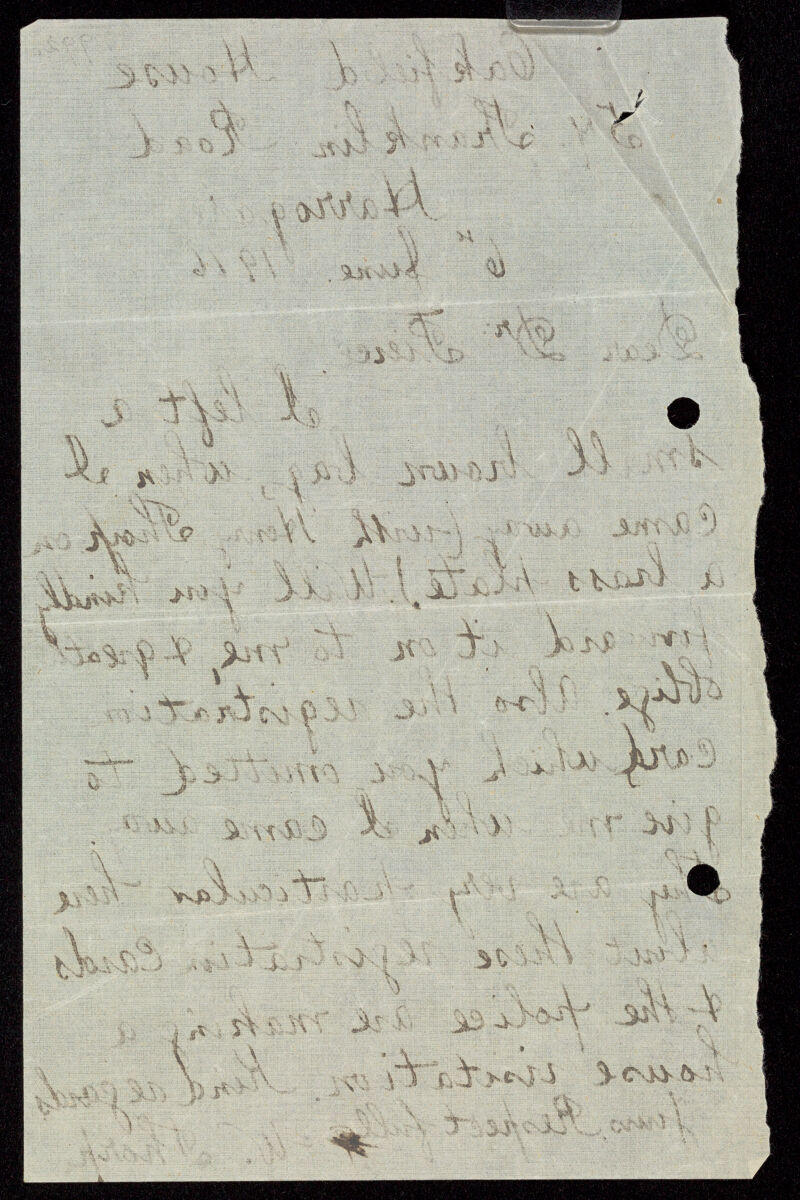 Oakfield House
54. Franklin Road
Harrogate
6th June. 1916
Dear Dr. Pierce
I left a
small brown bag, when I
came away (with Henry Thorp on
a brass plate). Will you kindly
forward it on to me, & greatly
oblige. Also the registration
card, which you omitted to
give me when I came away.
They are very particular here
about these registration cards
& the police are making a
house visitation. Kind regards
Yours Respectfully
Thorp